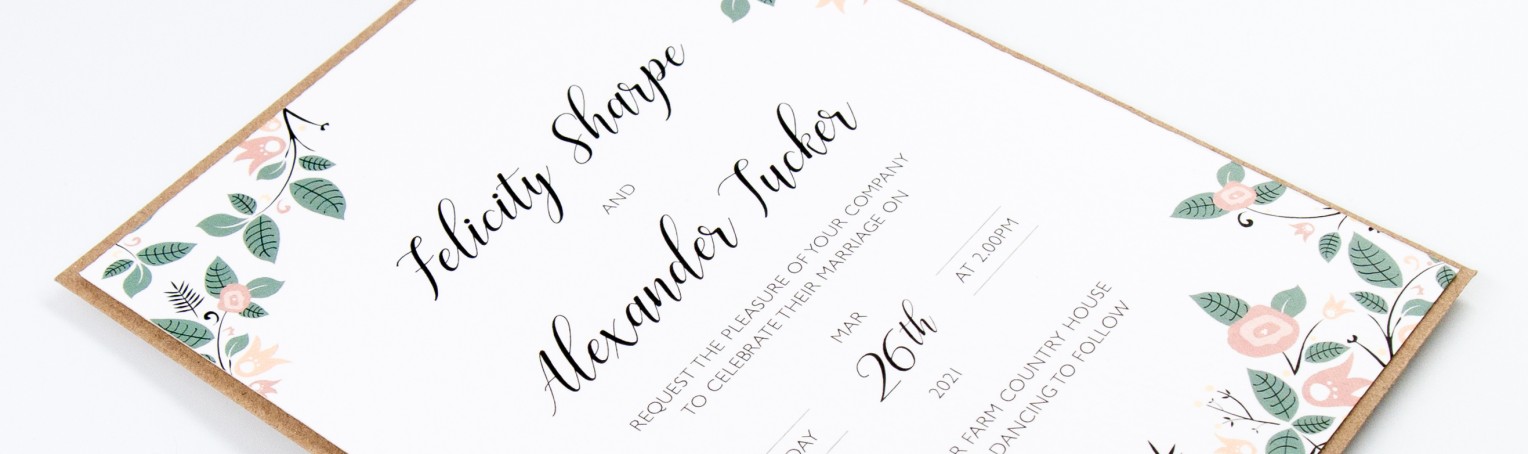 Felicity Sharpe
AND
Alexander Tucker
REQUEST THE PLEASURE OF YOUR COMPANY
TO CELEBRATE THEIR MARRIAGE ON
MAR
26th
AT 2.00PM
2021
FARM COUNTRY HOUSE
DANCING TO FOLLOW